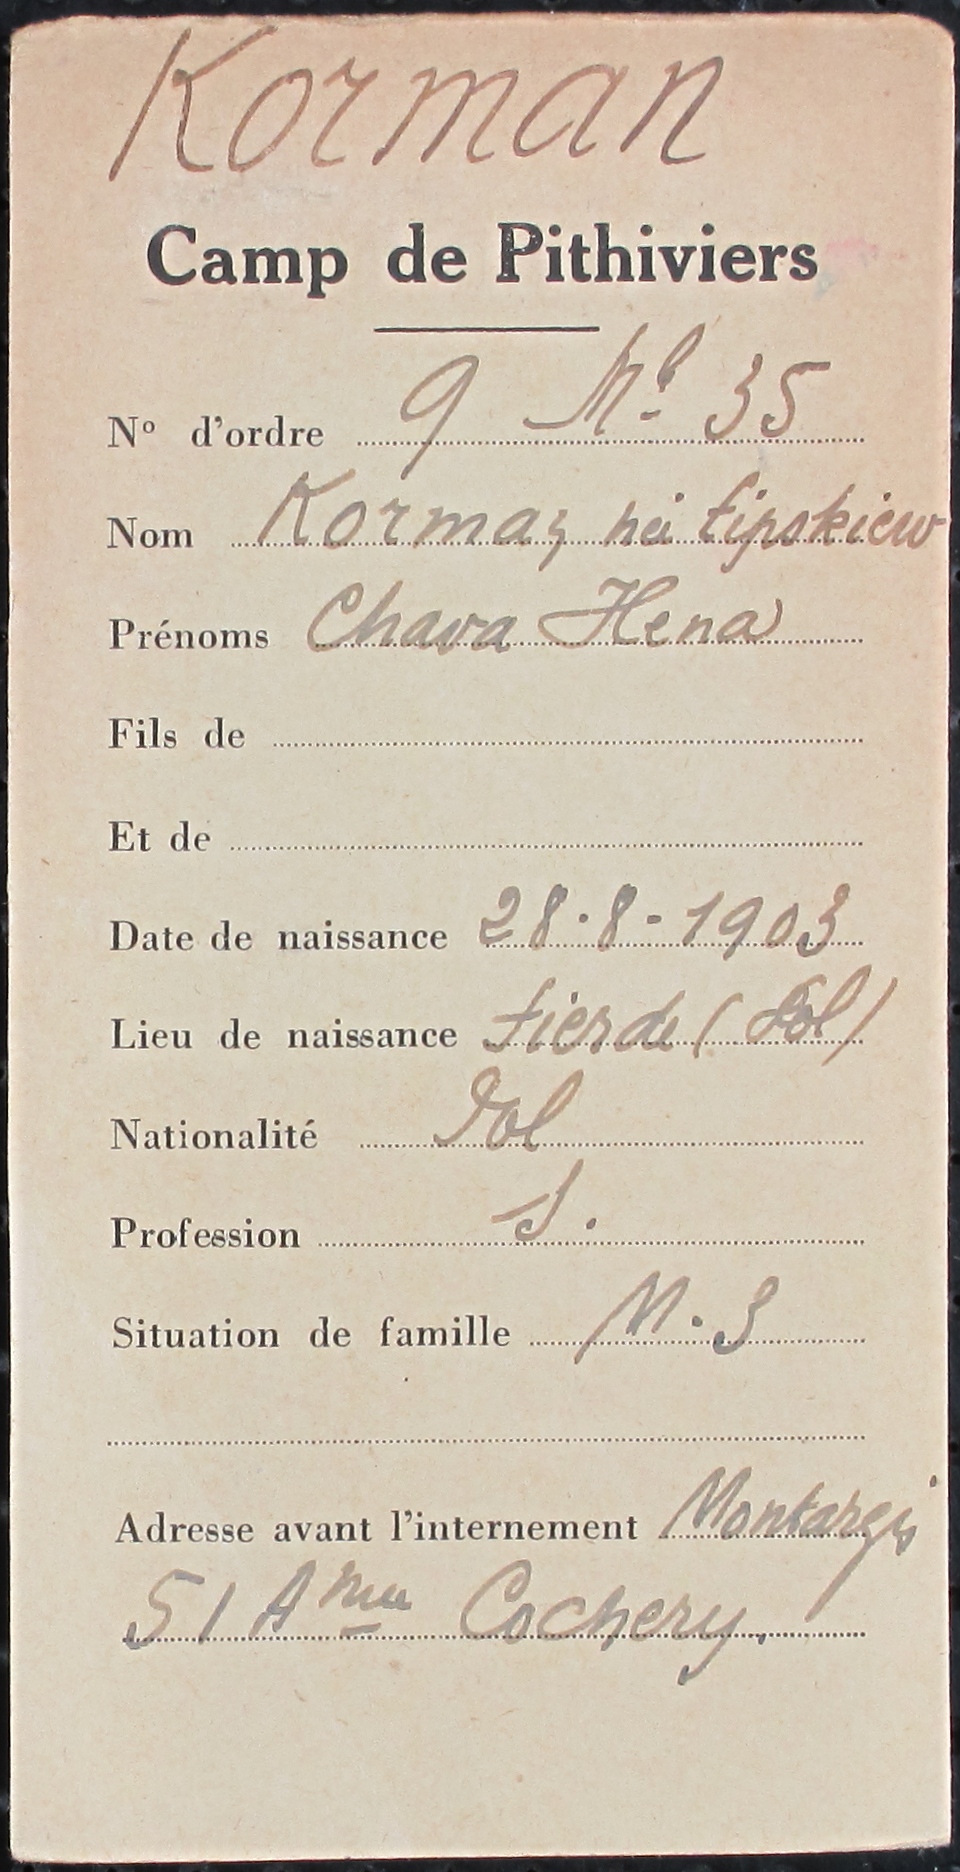 Korman
Camp de Pithiviers
Nº d'ordre 9 Ml 35
Nom Korman née
Prénoms Chava Hena
Fils de
Et de
Date de naissance 28.8-1903
Lieu de naissance (Pol)
Nationalité Pol
Profession S.
Situation de famille M. 3
Adresse avant l'internement Montargis
51 Anue Cochery.